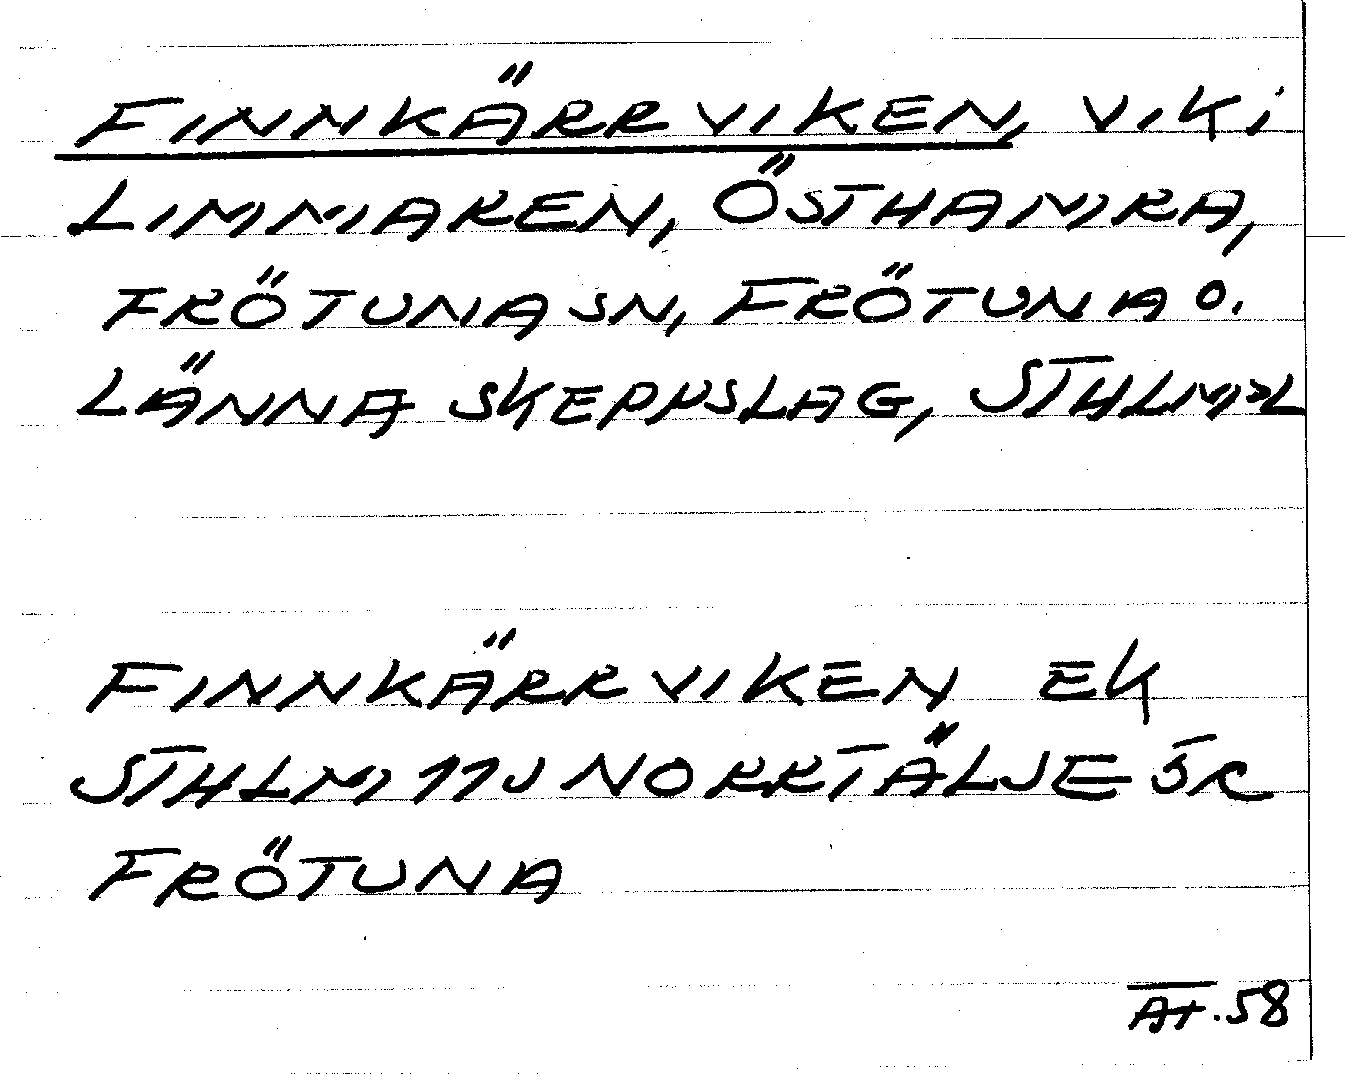 FINNKÄRRVIKEN, VIK I
LIMMAREN, ÖSTHAMRA,
FRÖTUNA SN, FRÖTUNA O.
LÄNNA SKEPPSLAG, STHLMSL
FINNKÄRRVIKEN EK
STHLM 11J NORRTÄLJE
FRÖTUNA
.58